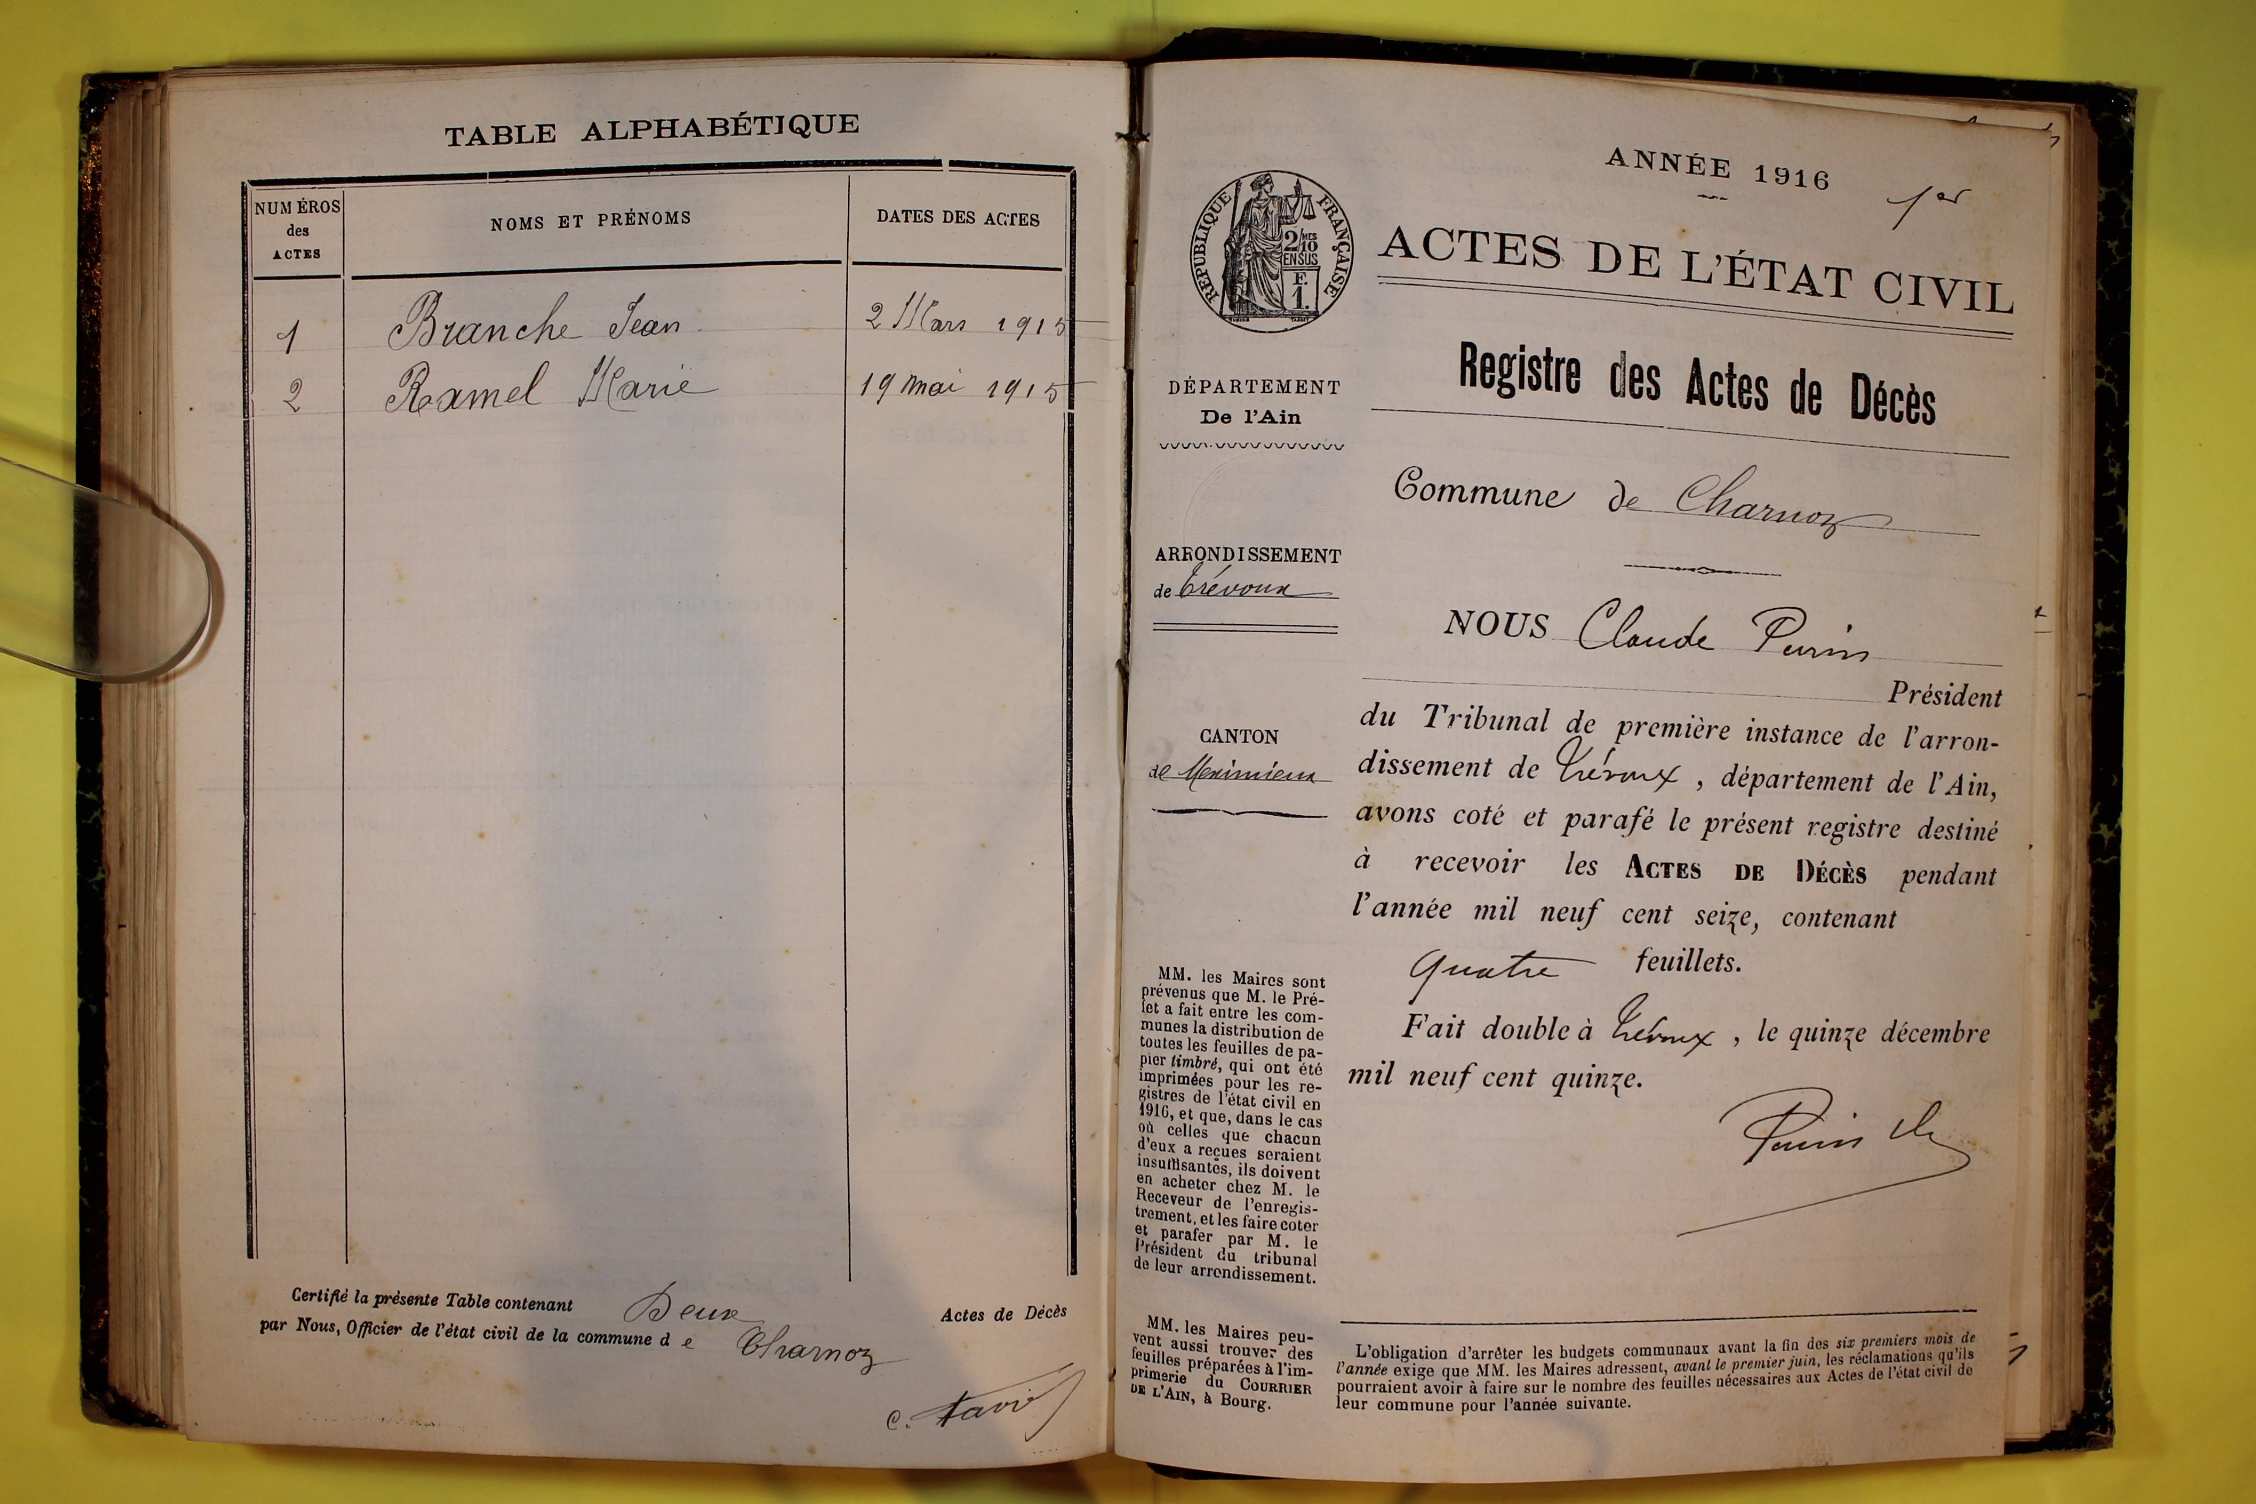 TABLE ALPHABÉTIQUE
NUMÉROS
des
ACTES
NOMS ET PRÉNOMS
DATES DES ACTES
1 Branche Jean 2 Mars 1915
2 Ramel Marie 19 mai 1915
Certifié la présente Table contenant Deux Actes de Décès
par Nous, Officier de l'état civil de la commune d e Charnoz
C.
ANNÉE 1916
1er
RÉPUBLIQUE FRANÇAISE
2/10 MES
EN SUS
F.
1.
ACTES DE L'ÉTAT CIVIL
Registre des Actes de Décès
DÉPARTEMENT
De l'Ain
Commune de Charnoz
ARRONDISSEMENT
de Trévoux
NOUS Claude
Président
du Tribunal de première instance de l'arron-
dissement de Trévoux, département de l'Ain,
avons coté et parafé le présent registre destiné
à recevoir les ACTES DE DÉCÈS pendant
l'année mil neuf cent seize, contenant
quatre feuillets.
Fait double à Trévoux, le quinze décembre
mil neuf cent quinze.
CANTON
de Meximieux
MM. les Maires sont
prévenus que M. le Pré-
fet a fait entre les com-
munes la distribution de
toutes les feuilles de pa-
pier timbré, qui ont été
imprimées pour les re-
gistres de l'état civil en
1916, et que, dans le cas
où celles que chacun
d'eux a reçues seraient
insuffisantes, ils doivent
en acheter chez M. le
Receveur de l'enregis-
trement, et les faire coter
et parafer par M. le
Président du tribunal
de leur arrondissement.
MM. les Maires peu-
vent aussi trouver des
feuilles préparées à l'im-
primerie du COURRIER
DE L'AIN, à Bourg.
L'obligation d'arrêter les budgets communaux avant la fin des six premiers mois de
l'année exige que MM. les Maires adressent, avant le premier juin, les réclamations qu'ils
pourraient avoir à faire sur le nombre des feuilles nécessaires aux Actes de l'état civil de
leur commune pour l'année suivante.